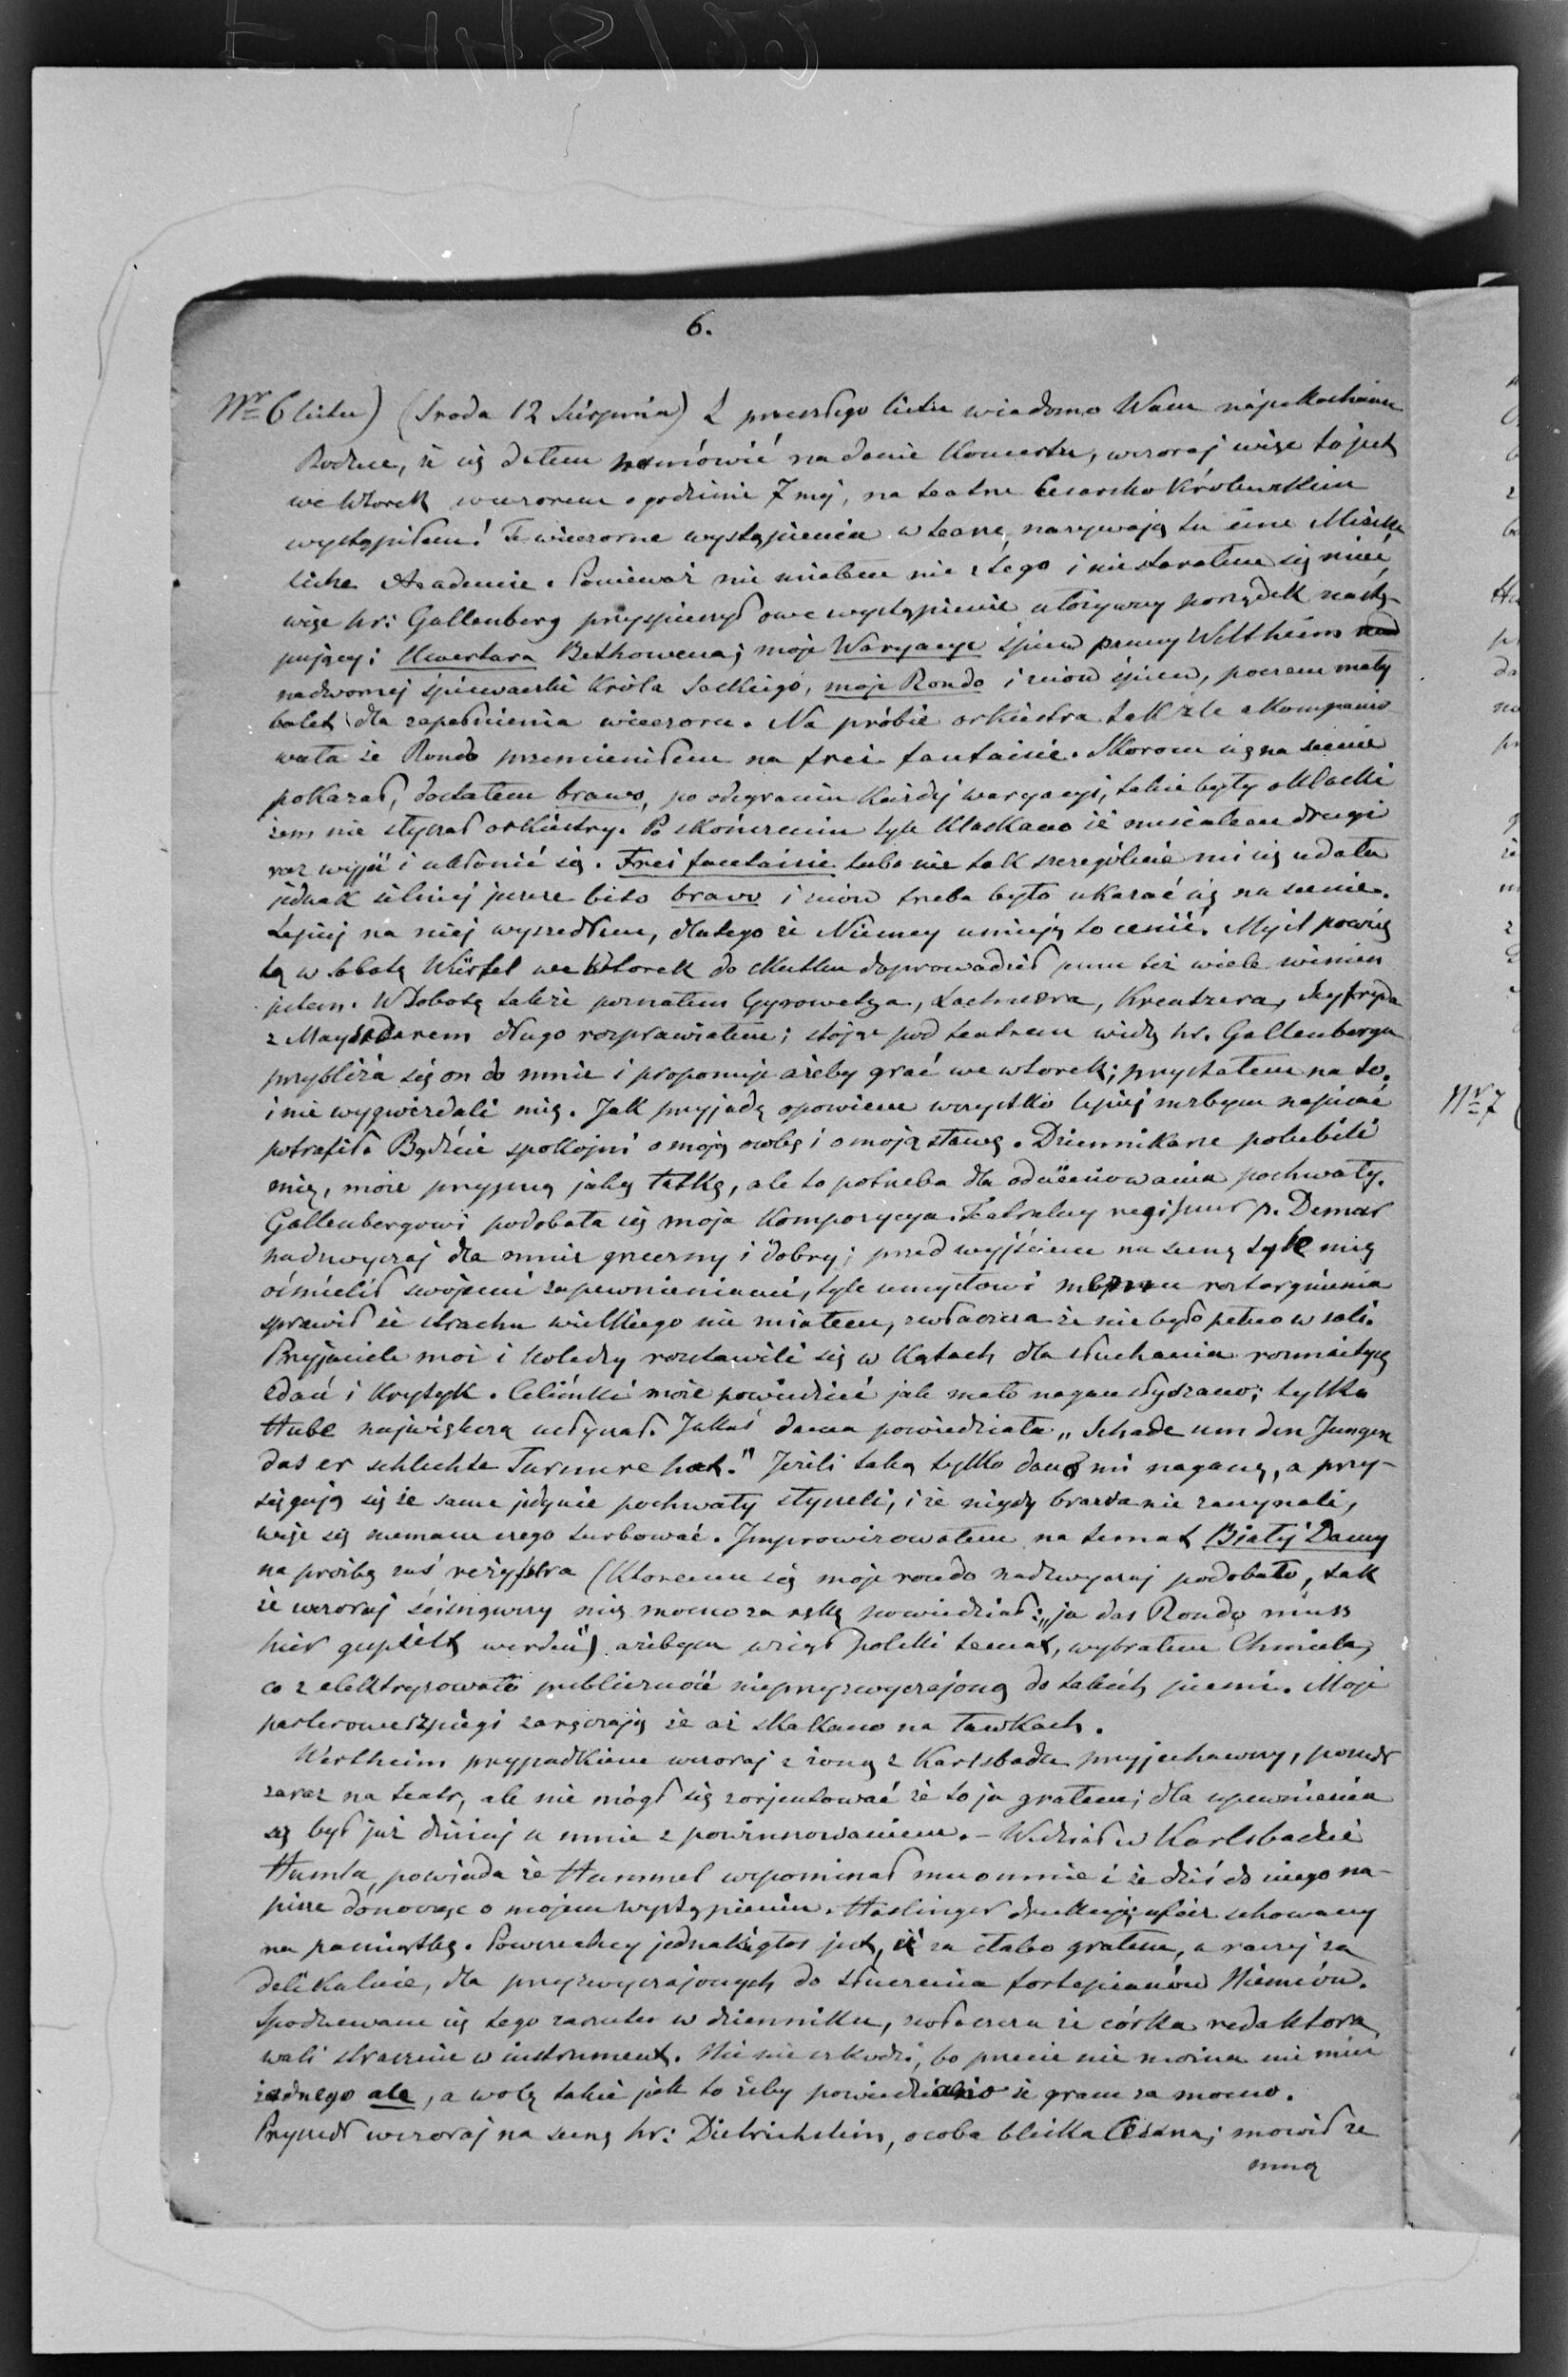 6.
Nr 6 listu) (Środa 12 Sierpnia) Z przeszłego listu wiadomo Wam najukochańsi
Rodzice, że się dałem namówić na danie Koncertu, wczoraj więc to jest
we Wtorek wieczorem o godzinie 7mej, na teatrze Cesarsko Królewskim
wystąpiłem! Te wieczorne wystąpienia w teatrze, nazywają tu eine Musika-
lische Academie. Ponieważ nie miałem nic z tego i nie starałem się mieć,
więc hr: Gallenberg przyspieszył owe wystąpienie ułożywszy porządek nastę-
pujący: Uwertura Bethowena; moje Waryacye śpiew panny Veltheim
nadwornej śpiewaczki Króla Saskiego, moje Rondo i znów śpiew, poczem mały
balet dla zapełnienia wieczoru. Na próbie orkiestra tak źle akompanio-
wała że Rondo przemieniłem na frei fantaisie. Skorom się na scenie
pokazał, dostałem brawo, po odegraniu każdej waryacyi, takie były oklaski
żem nie słyszał orkiestry. Po skończeniu tyle klaskano że musiałem drugi
raz wyjść i ukłonić się. Frei fantaisie lubo nie tak szczególnie mi się udała
jednak silniej jeszcze bito brawo i znów trzeba było ukazać się na scenie.
Lepiej na niej wyszedłem, dlatego że Niemcy umieją to cenić. Myśl powzię-
tą w Sobotę Würfel we Wtorek do skutku doprowadził jemu też wiele winien
jestem. W Sobotę także poznałem Gyrowetza, Lachnera, Kreutzera, Seyfryda
z Mayseder em długo rozprawiałem; stojąc pod teatrem widzę hr. Gallenberga
przybliża się on do mnie i proponuje ażeby grać we wtorek; przystałem na to,
i nie wygwizdali mię. Jak przyjadę opowiem wszystko lepiej niżbym napisać
potrafił. Bądźcie spokojni o moję osobę i o moją sławę. Dziennikarze polubili
mię, może przypną jaką łatkę, ale to potrzeba dla odcieniowania pochwały.
Gallenbergowi podobała się moja Kompozycya. Teatralny regisseur p. Demar
nadzwyczaj dla mnie grzeczny i dobry; przed wyjściem na scenę tyle mię
ośmielił swojemi zapewnieniami, tyle umysłowi memu roztargnienia
sprawił że strachu wielkiego nie miałem, zwłaszcza że nie było pełno w sali.
Przyjaciele moi i koledzy rozstawili się w kątach dla słuchania rozmaitych
zdań i krytyk. Celiński może powiedzieć jak mało nagan słyszano; tylko
Hube największą usłyszał. Jakaś dama powiedziała „Schade um den Jungen
das er schlechte Turnure hat." Jeżeli taką tylko dano mi naganę, a przy-
sięgają się że same jedynie pochwały słyszeli, i że nigdy brawa nie zaczynali,
więc się niemam czego turbować. Improwizowałem na temat Białej Damy
na prośbę zaś reżyssera (któremu się moje rondo nadzwyczaj podobało, tak
że wczoraj ścisnąwszy mię mocno za rękę powiedział: „ja das Rondo muss
hier gespielt werden") ażebym wziął polski temat, wybrałem Chmiela,
co z elektryzowało publiczność nieprzyzwyczajoną do takich pieśni. Moje
parterowe szpiegi zaręczają że aż skakano na ławkach.
Wertheim przypadkiem wczoraj z żoną z Karlsbadu przyjechawszy, poszedł
zaraz na teatr, ale nie mógł się zorjentować że to ja grałem; dla upewnienia
się był już dzisiaj u mnie z powinszowaniem. – Widział w Karlsbadzie
Humla, powiada że Hummel wspominał mu o mnie i że dziś do niego na-
pisze donosząc o mojem wystąpieniu. Haslinger drukuje; afisz schowany
na pamiątkę. Powszechny jednakże głos jest, iż za słabo grałem, a raczej za
delikatnie, dla przyzwyczajonych do tłuczenia fortepianów Niemców.
Spodziewam się tego zarzutu w dzienniku, zwłaszcza że córka redaktora
wali strasznie w instrument. Nic nie szkodzi, bo przecie nie można nie mieć
żadnego ale, a wolę takie jak to żeby powiedziano że gram za mocno.
Przyszedł wczoraj na scenę hr: Dietrichstein, osoba bliska Cesarza; mówił ze
mną
Nr 7